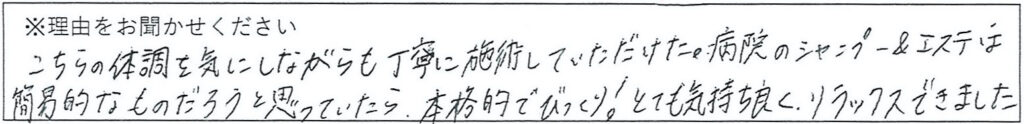 ※理由をお聞かせください
こちらの体調を気にしながらも丁寧に施術していただけた。病院のシャンプー&エステは
簡易的なものだろうと思っていたら、本格的でびっくり!とても気持ち良く、リラックスできました